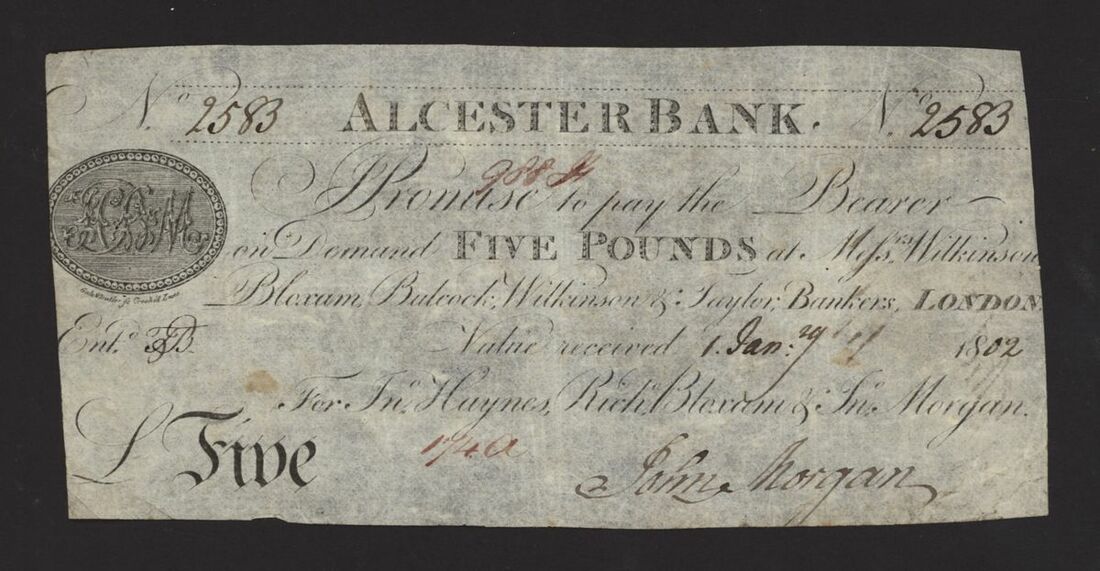 No. 2583 ALCESTER BANK. No. 2583
I Promise to pay the Bearer
on Demand FIVE POUNDS at Messrs. Wilkinson
Bloxam, Balcock, Wilkinson & Taylor, Bankers, LONDON
Entd. Value received 1 Jany. 1802
For Jno. Haynes, Richd. Bloxam & Jno. Morgan.
£ Five
John Morgan